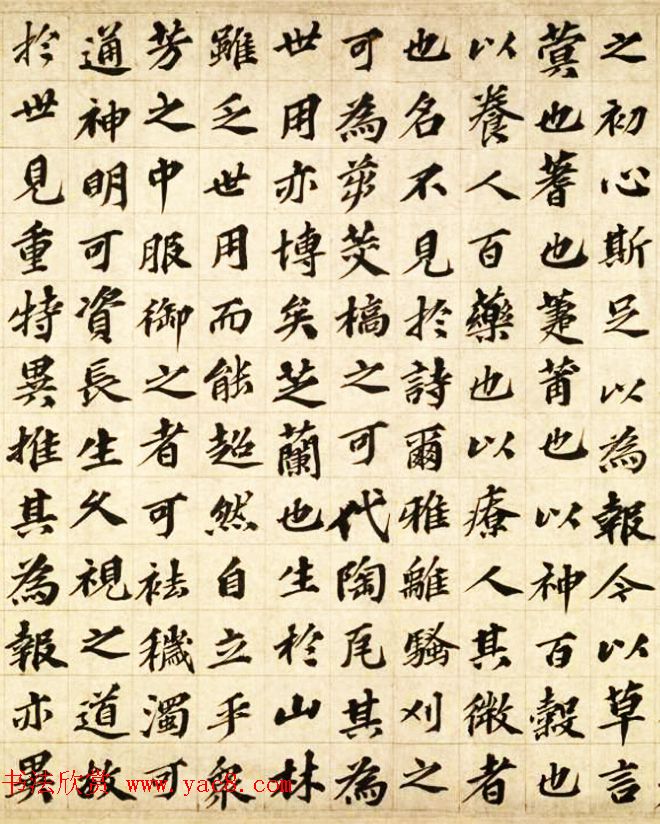 之初心斯足以為報令以草言
蓂也蓍也萐莆也以神百穀也
以養人百藥也以療人其微者
也名不見於詩爾雅離騷刈之
可為茭槁之可代陶瓦其為
世用亦博矣芝蘭也生於山林
雖乏世用而能超然自立乎衆
芳之中服御之者可祛穢濁可
通神明可資長生久視之道故
於世見重特異推其為報亦異
书法欣赏 www.yac8.com